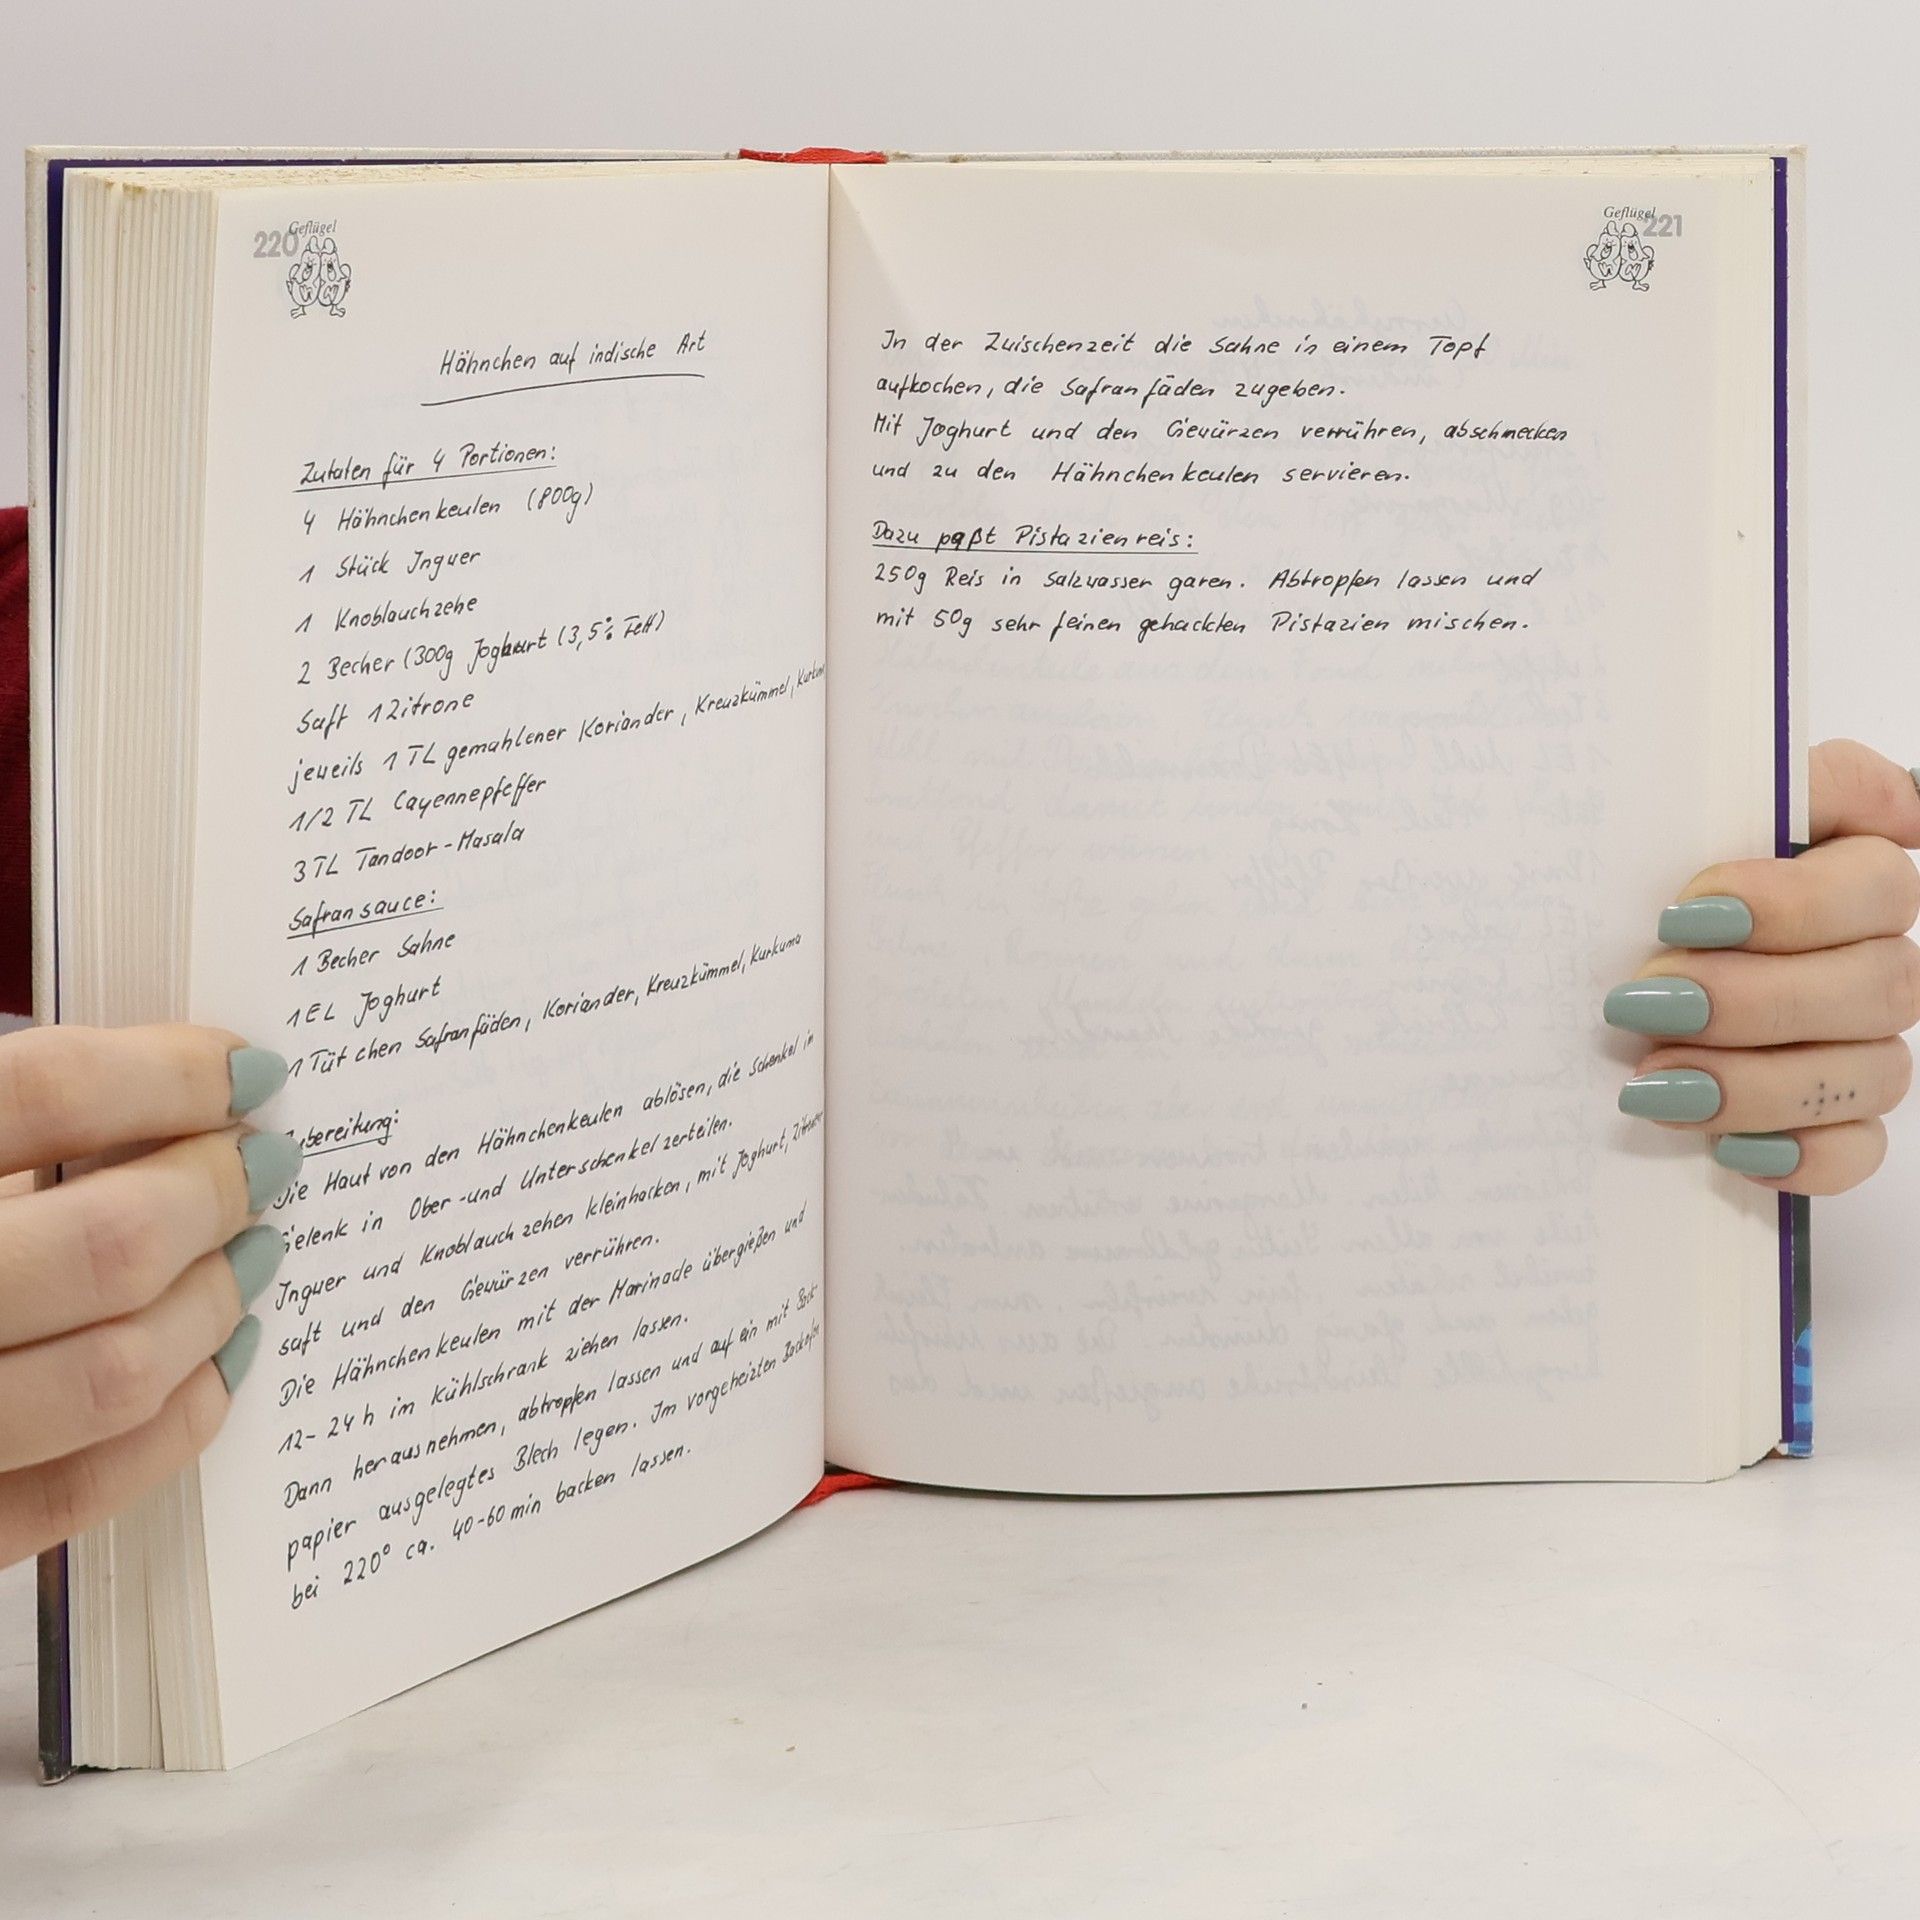 220
Geflügel
Hähnchen auf indische Art
Zutaten für 4 Portionen:
4 Hähnchenkeulen (800g)
1 Stück Ingwer
1 Knoblauchzehe
2 Becher (300g Joghurt (3,5% Fett)
Saft 1 Zitrone
jeweils 1 TL gemahlener Koriander, Kreuzkümmel,
1/2 TL Cayennepfeffer
3 TL Tandoor-Masala
Safransauce:
1 Becher Sahne
1 EL Joghurt
1 Tütchen Safranfäden, Koriander, Kreuzkümmel, Kurkuma
Zubereitung:
Die Haut von den Hähnchenkeulen ablösen, die Schenkel im
Gelenk in Ober-und Unterschenkel zerteilen.
Ingwer und Knoblauchzehen kleinhacken, mit Joghurt, Zitronen
saft und den Gewürzen verrühren.
Die Hähnchenkeulen mit der Marinade übergießen und
12-24 h im Kühlschrank ziehen lassen.
Dann herausnehmen, abtropfen lassen und auf ein mit Back-
papier ausgelegtes Blech legen. Im vorgeheizten Backofen
bei 220° ca. 40-60 min backen lassen.
Geflügel
221
In der Zwischenzeit die Sahne in einem Topf
aufkochen, die Safranfäden zugeben.
Mit Joghurt und den Gewürzen verrühren, abschmecken
und zu den Hähnchenkeulen servieren.
Dazu paßt Pistazienreis:
250g Reis in Salzwasser garen. Abtropfen lassen und
mit 50g sehr feinen gehackten Pistazien mischen.